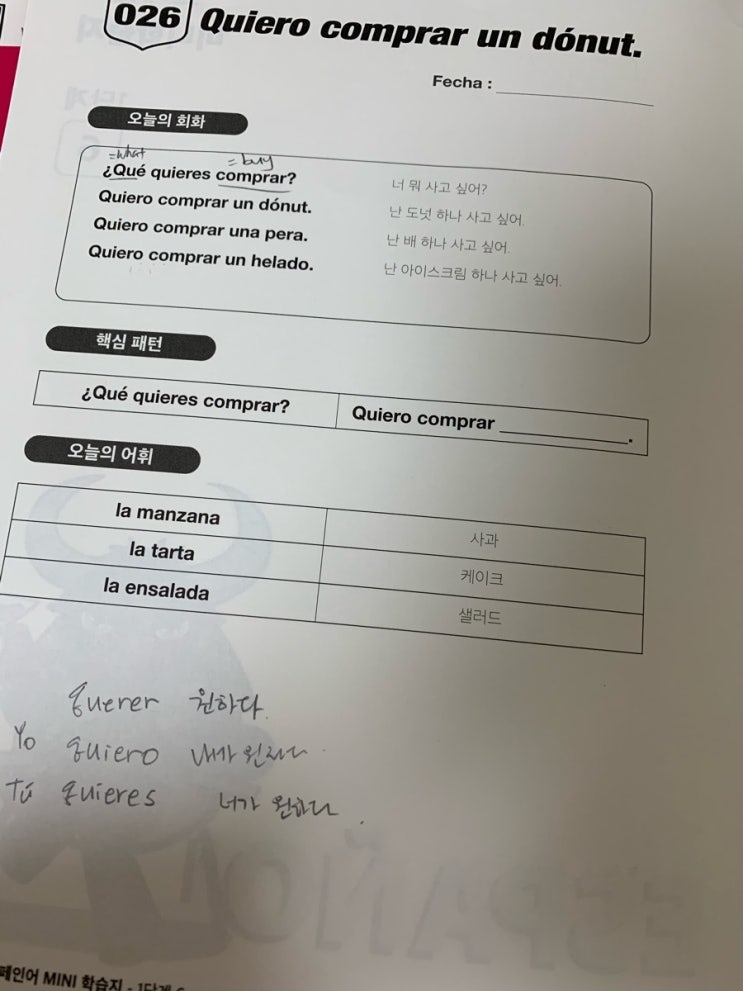 026 Quiero comprar un dónut.
Fecha :
오늘의 회화
=what =buy
¿Qué quieres comprar? 너 뭐 사고 싶어?
Quiero comprar un dónut. 난 도넛 하나 사고 싶어.
Quiero comprar una pera. 난 배 하나 사고 싶어.
Quiero comprar un helado. 난 아이스크림 하나 사고 싶어.
핵심 패턴
¿Qué quieres comprar? Quiero comprar ____________.
오늘의 어휘
la manzana 사과
la tarta 케이크
la ensalada 샐러드
querer 원하다.
Yo quiero 내가 원하다
Tú quieres 너가 원하다.
ESPAÑOL
페인어 MINI 학습지 - 1단계